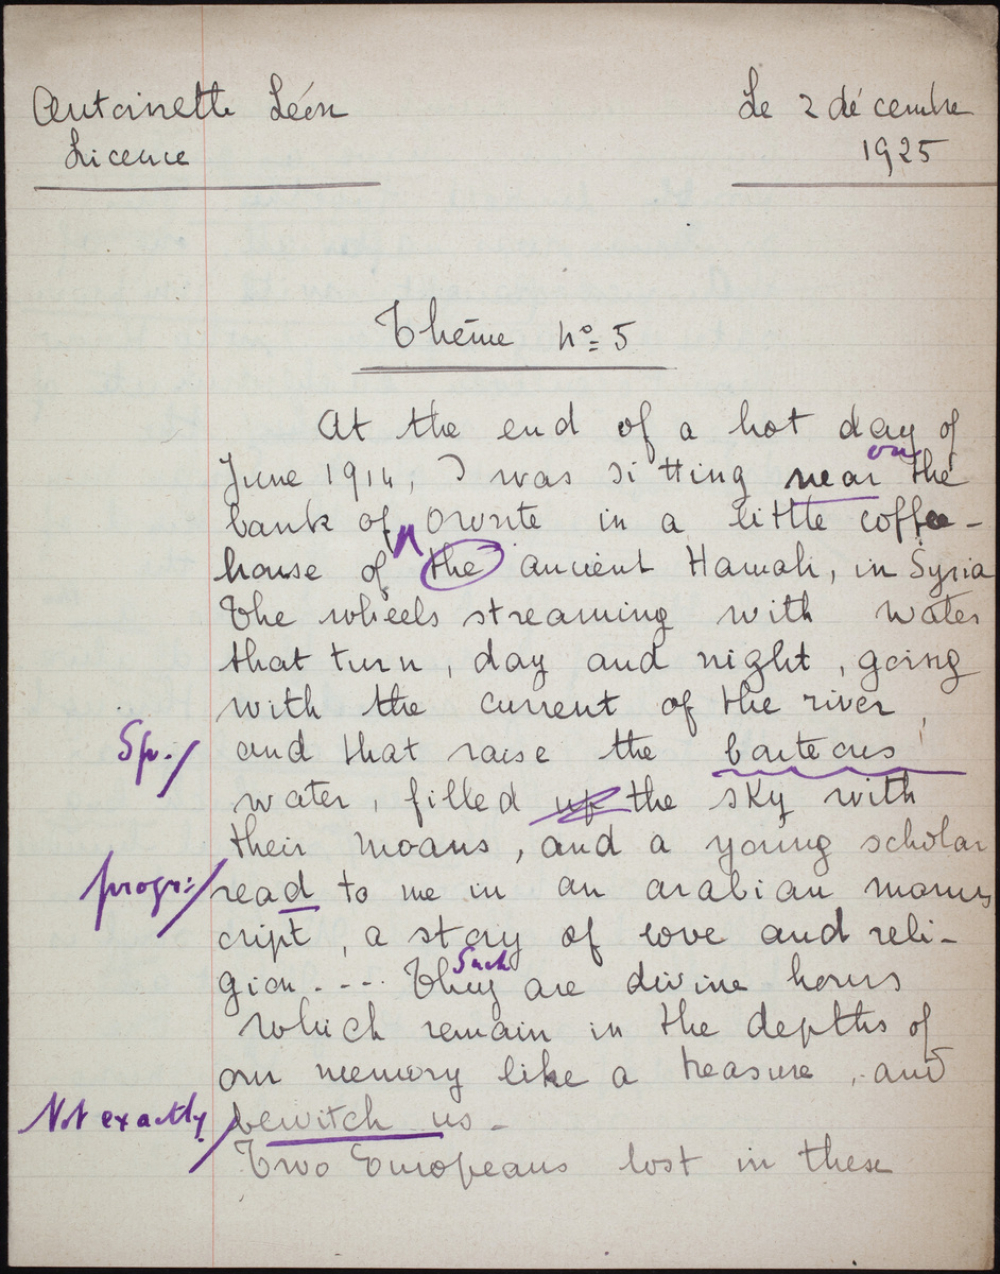 Antoinette Léon
Le 2 décembre
Licence
1925
Thème n° 5
At the end of a hot day of
on
June 1914, I was sitting near the
bank of Oronte in a little coffee-
house of the ancient Hamah, in Syria
The wheels streaming with water
that turn, day and night, going
with the current of the river
Sp./
and that raise the bouteous
water, filled up the sky with
their moans, and a young scholar
progr:/
read to me in an arabian manus
cript, a story of love and reli-
Such
gion.--- They are divine hours
which remain in the depths of
our memory like a treasure, and
Not exactly/
bewitch us-
Two Europeans lost in these